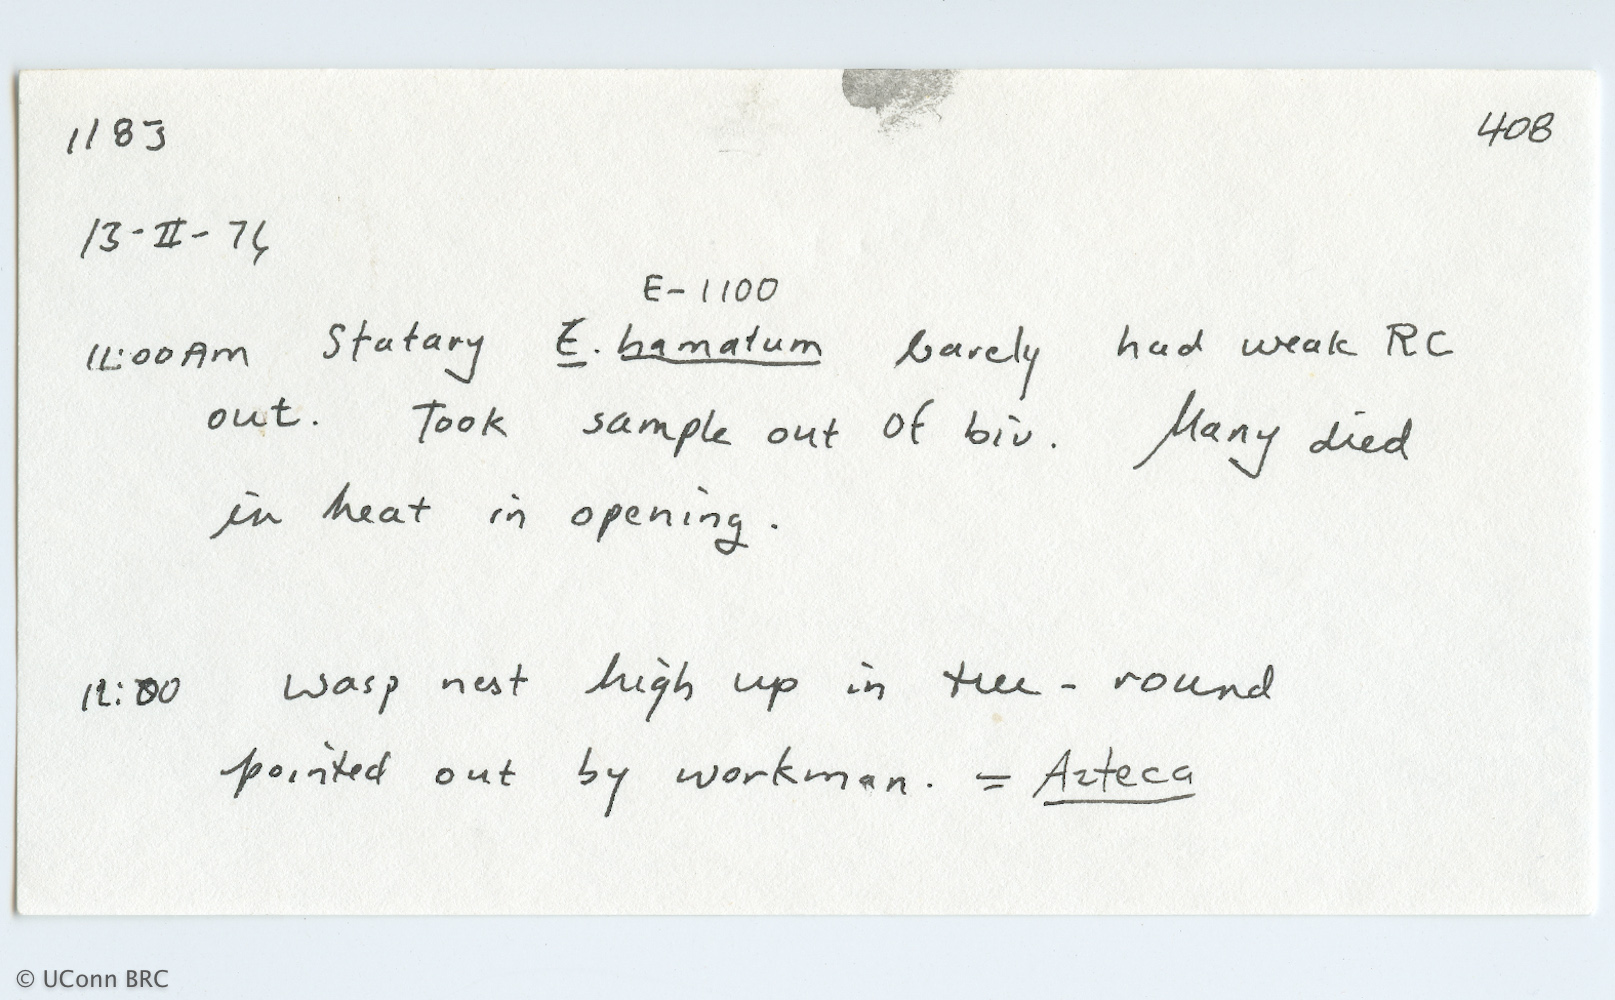 1183
408
13-II-76
E-1100
11:00AM Statary E. hamatum barely had weak RC
out. Took sample out of biv. Many died
in heat in opening.
12:00 wasp nest high up in tree - round
pointed out by workman. = Azteca
© UConn BRC